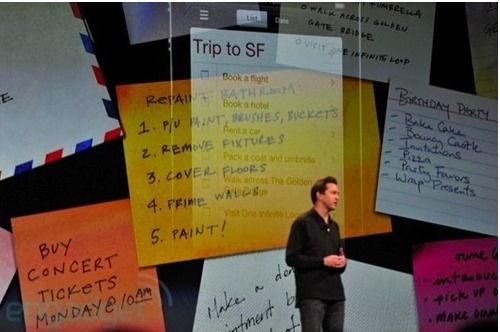 UMBRELLA
WALK ACROSS GOLDEN
GATE BRIDGE
VISIT ONE INFINITE LOOP
List
Date
Trip to SF
Book a flight
Book a hotel
Rent a car
Pack a coat and umbrella
Walk across The Golden
Visit One Infinite Loo
REPAINT BATHROOM:
1. P/U PAINT, BRUSHES, BUCKETS
2. REMOVE FIXTURES
3. COVER FLOORS
4. PRIME WALLS
5. PAINT!
Birthday Party
- Bake Cake
- Bounce Castle
- Invitations
- Pizza
- Party Favors
- Wrap Presents
BUY
CONCERT
TICKETS
MONDAY @ 10AM
engadget
Make a
June
introduc
pick up
make din